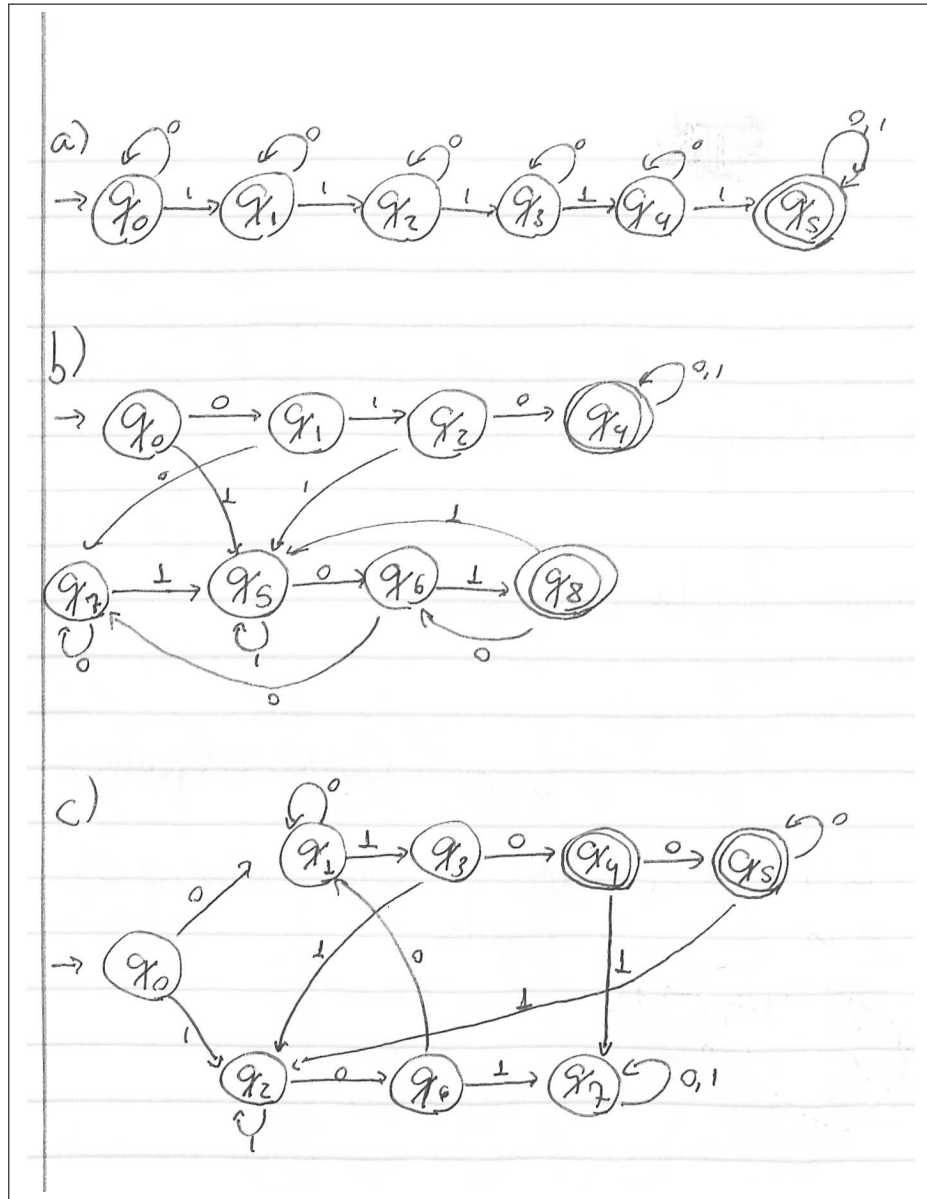 a)
0 0 0 0 0 0,1
q0 1 q1 1 q2 1 q3 1 q4 1 q5
b)
0,1
q0 0 q1 1 q2 0 q4
0 1 1 1
q7 1 q5 0 q6 1 q8
0 1 0 0
c)
0
q1 1 q3 0 q4 0 q5 0
0 1 0 1
q0 1
1
q2 0 q6 1 q7 0,1
1